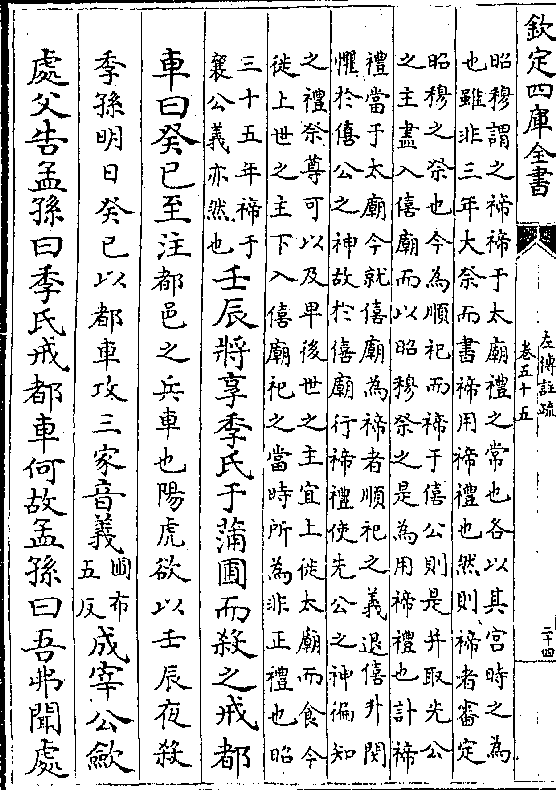 欽定四庫全書
左傳註疏
卷五十五
二十四
昭穆謂之禘禘于太廟禮之常也各以其宮時之為
也雖非三年大祭而書禘用禘禮也然則禘者審定
昭穆之祭也今為順祀而禘于僖公則是并取先公
之主盡入僖廟而以昭穆祭之是為用禘禮也計禘
禮當于太廟今就僖廟為禘者順祀之義退僖升閔
懼於僖公之神故於僖廟行禘禮使先公之神徧知
之禮祭尊可以及卑後世之主宜上徙太廟而食今
徙上世之主下入僖廟祀之當時所為非正禮也昭
三十五年禘于
襄公義亦然也
壬辰將享季氏于蒲圃而殺之戒都
車曰癸巳至注都邑之兵車也陽虎欲以壬辰夜殺
季孫明日癸巳以都車攻三家音義
圃布
五反
成宰公歛
處父告孟孫曰季氏戒都車何故孟孫曰吾弗聞處